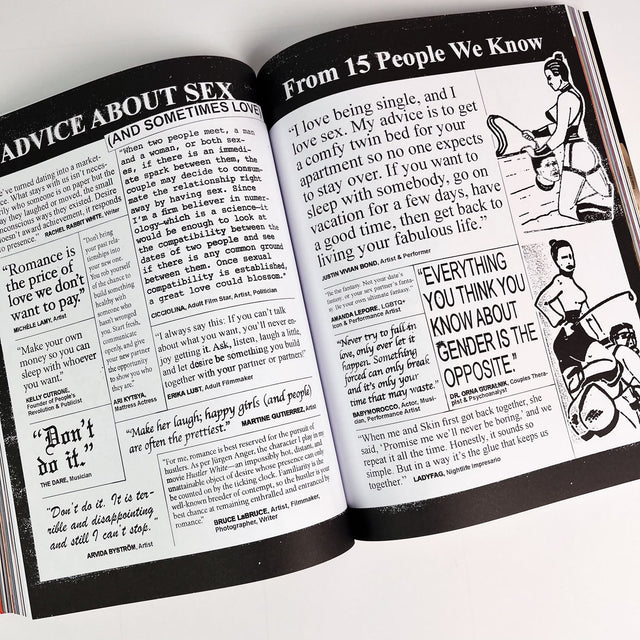 ADVICE ABOUT SEX
(AND SOMETIMES LOVE)
From 15 People We Know
've turned dating into a market-
place. What stays with us isn't neces-
rily who someone is on paper, but
they laughed or moved, the small
nconscious ways they existed. Desire
doesn't award achievement, it responds
to presence."
RACHEL RABBIT WHITE, Writer
"Romance is
the price of
love we don't
want to pay."
MICHÈLE LAMY, Artist
"Make your own
money so you can
sleep with whoever
you want."
KELLY CUTRONE,
Founder of People's
Revolution & Publicist
"Don't
do it."
THE DARE, Musician
"Don't do it. It is ter-
rible and disappointing
and still I can't stop."
ARVIDA BYSTRÖM, Artist
"Don't bring
your past rela-
tionships into
your new one.
You rob yourself
of the chance
to build
something
healthy with
someone who
hasn't wronged
you. Start fresh,
communicate
openly, and give
your new partner
the opportunity
to show you who
they are."
ARI KYTSYA,
Mattress Actress
"When two people meet, a man
and a woman, or both sex-
es, if there is an immedi-
ate spark between them, the
couple may decide to consum-
mate the relationship right
away by having sex. Since
I'm a firm believer in numer-
ology—which is a science—it
would be enough to look at
the compatibility between the
dates of two people and see
if there is any common ground
between them. Once sexual
compatibility is established,
a great love could blossom."
CICCIOLINA, Adult Film Star, Artist, Politician
"I always say this: If you can't talk
about what you want, you'll never en-
joy getting it. Ask, listen, laugh a little,
and let desire be something you build
together with your partner or partners!"
ERIKA LUST, Adult Filmmaker
"Make her laugh; happy girls (and people)
are often the prettiest."
MARTINE GUTIERREZ, Artist
"For me, romance is best reserved for the pursuit of
hustlers. As per Jürgen Anger, the character I play in my
movie Hustler White—an impossibly hot, distant, and
unattainable object of desire whose presence can only
be counted on by the ticking clock. Familiarity is the
well-known breeder of contempt, so the hustler is your
best chance at remaining enthralled and entranced by
romance."
BRUCE LaBRUCE, Artist, Filmmaker,
Photographer, Writer
"I love being single, and I
love sex. My advice is to get
a comfy twin bed for your
apartment so no one expects
to stay over. If you want to
sleep with somebody, go on
vacation for a few days, have
a good time, then get back to
living your fabulous life."
JUSTIN VIVIAN BOND, Artist & Performer
"Be the fantasy. Not your date's
fantasy, or your sex partner's fanta-
sy. Be your own ultimate fantasy."
AMANDA LEPORE, LGBTQ+
Icon & Performance Artist
"Never try to fall in
love, only ever let it
happen. Something
forced can only break
and it's only your
time that may waste."
BABYMOROCCO, Actor, Musi-
cian, Performance Artist
"EVERYTHING
YOU THINK YOU
KNOW ABOUT
GENDER IS THE
OPPOSITE."
DR. ORNA GURALNIK, Couples Thera-
pist & Psychoanalyst
"When me and Skin first got back together, she
said, 'Promise me we'll never be boring,' and we
repeat it all the time. Honestly, it sounds so
simple. But in a way it's the glue that keeps us
together."
LADYFAG, Nightlife Impresario